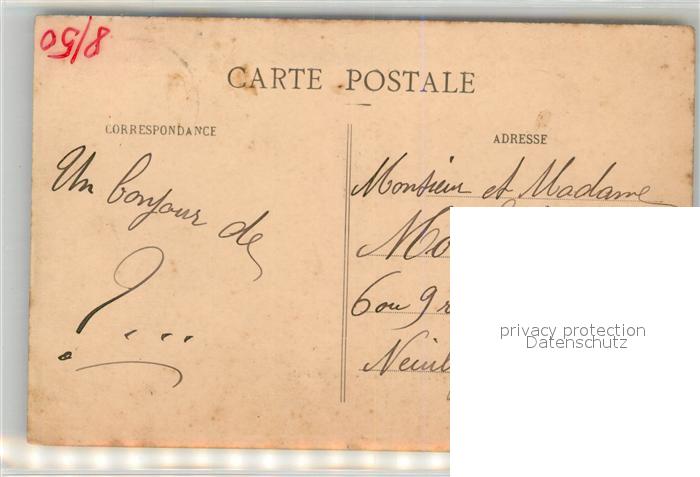 8/50
CARTE POSTALE
CORRESPONDANCE
ADRESSE
Un bonjour de
?...
Monsieur et Madame
Mo
6 ou 9 r
Neuil
privacy protection
Datenschutz